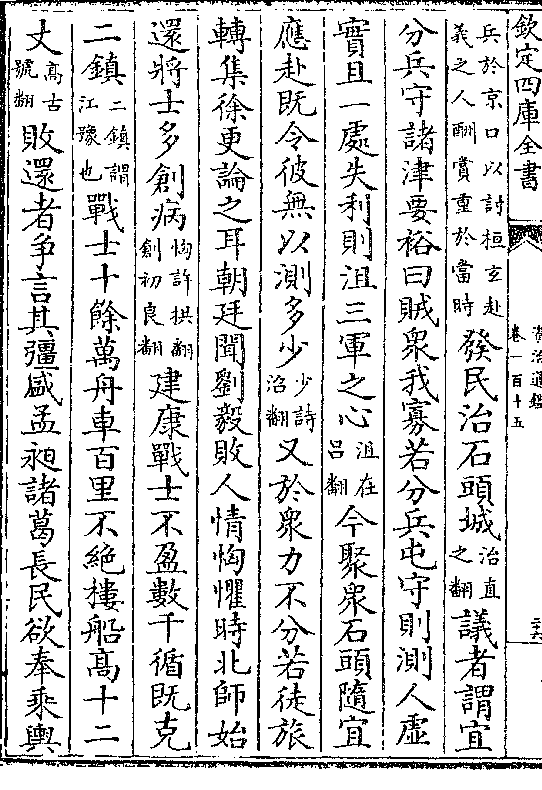 欽定四庫全書
資治通鑑
卷一百十五
二十六
兵於京口以討桓玄赴
義之人酬賞重於當時
發民治石頭城
治直
之翻
議者謂宜
分兵守諸津要裕曰賊衆我寡若分兵屯守則測人虛
實且一處失利則沮三軍之心
沮在
呂翻
今聚衆石頭隨宜
應赴既令彼無以測多少
少詩
沼翻
又於衆力不分若徒旅
轉集徐更論之耳朝廷聞劉毅敗人情恟懼時北師始
還將士多創病
恟許拱翻
創初良翻
建康戰士不盈數千循既克
二鎮
二鎮謂
江豫也
戰士十餘萬舟車百里不絶樓船高十二
丈
高古
號翻
敗還者争言其彊盛孟昶諸葛長民欲奉乘輿